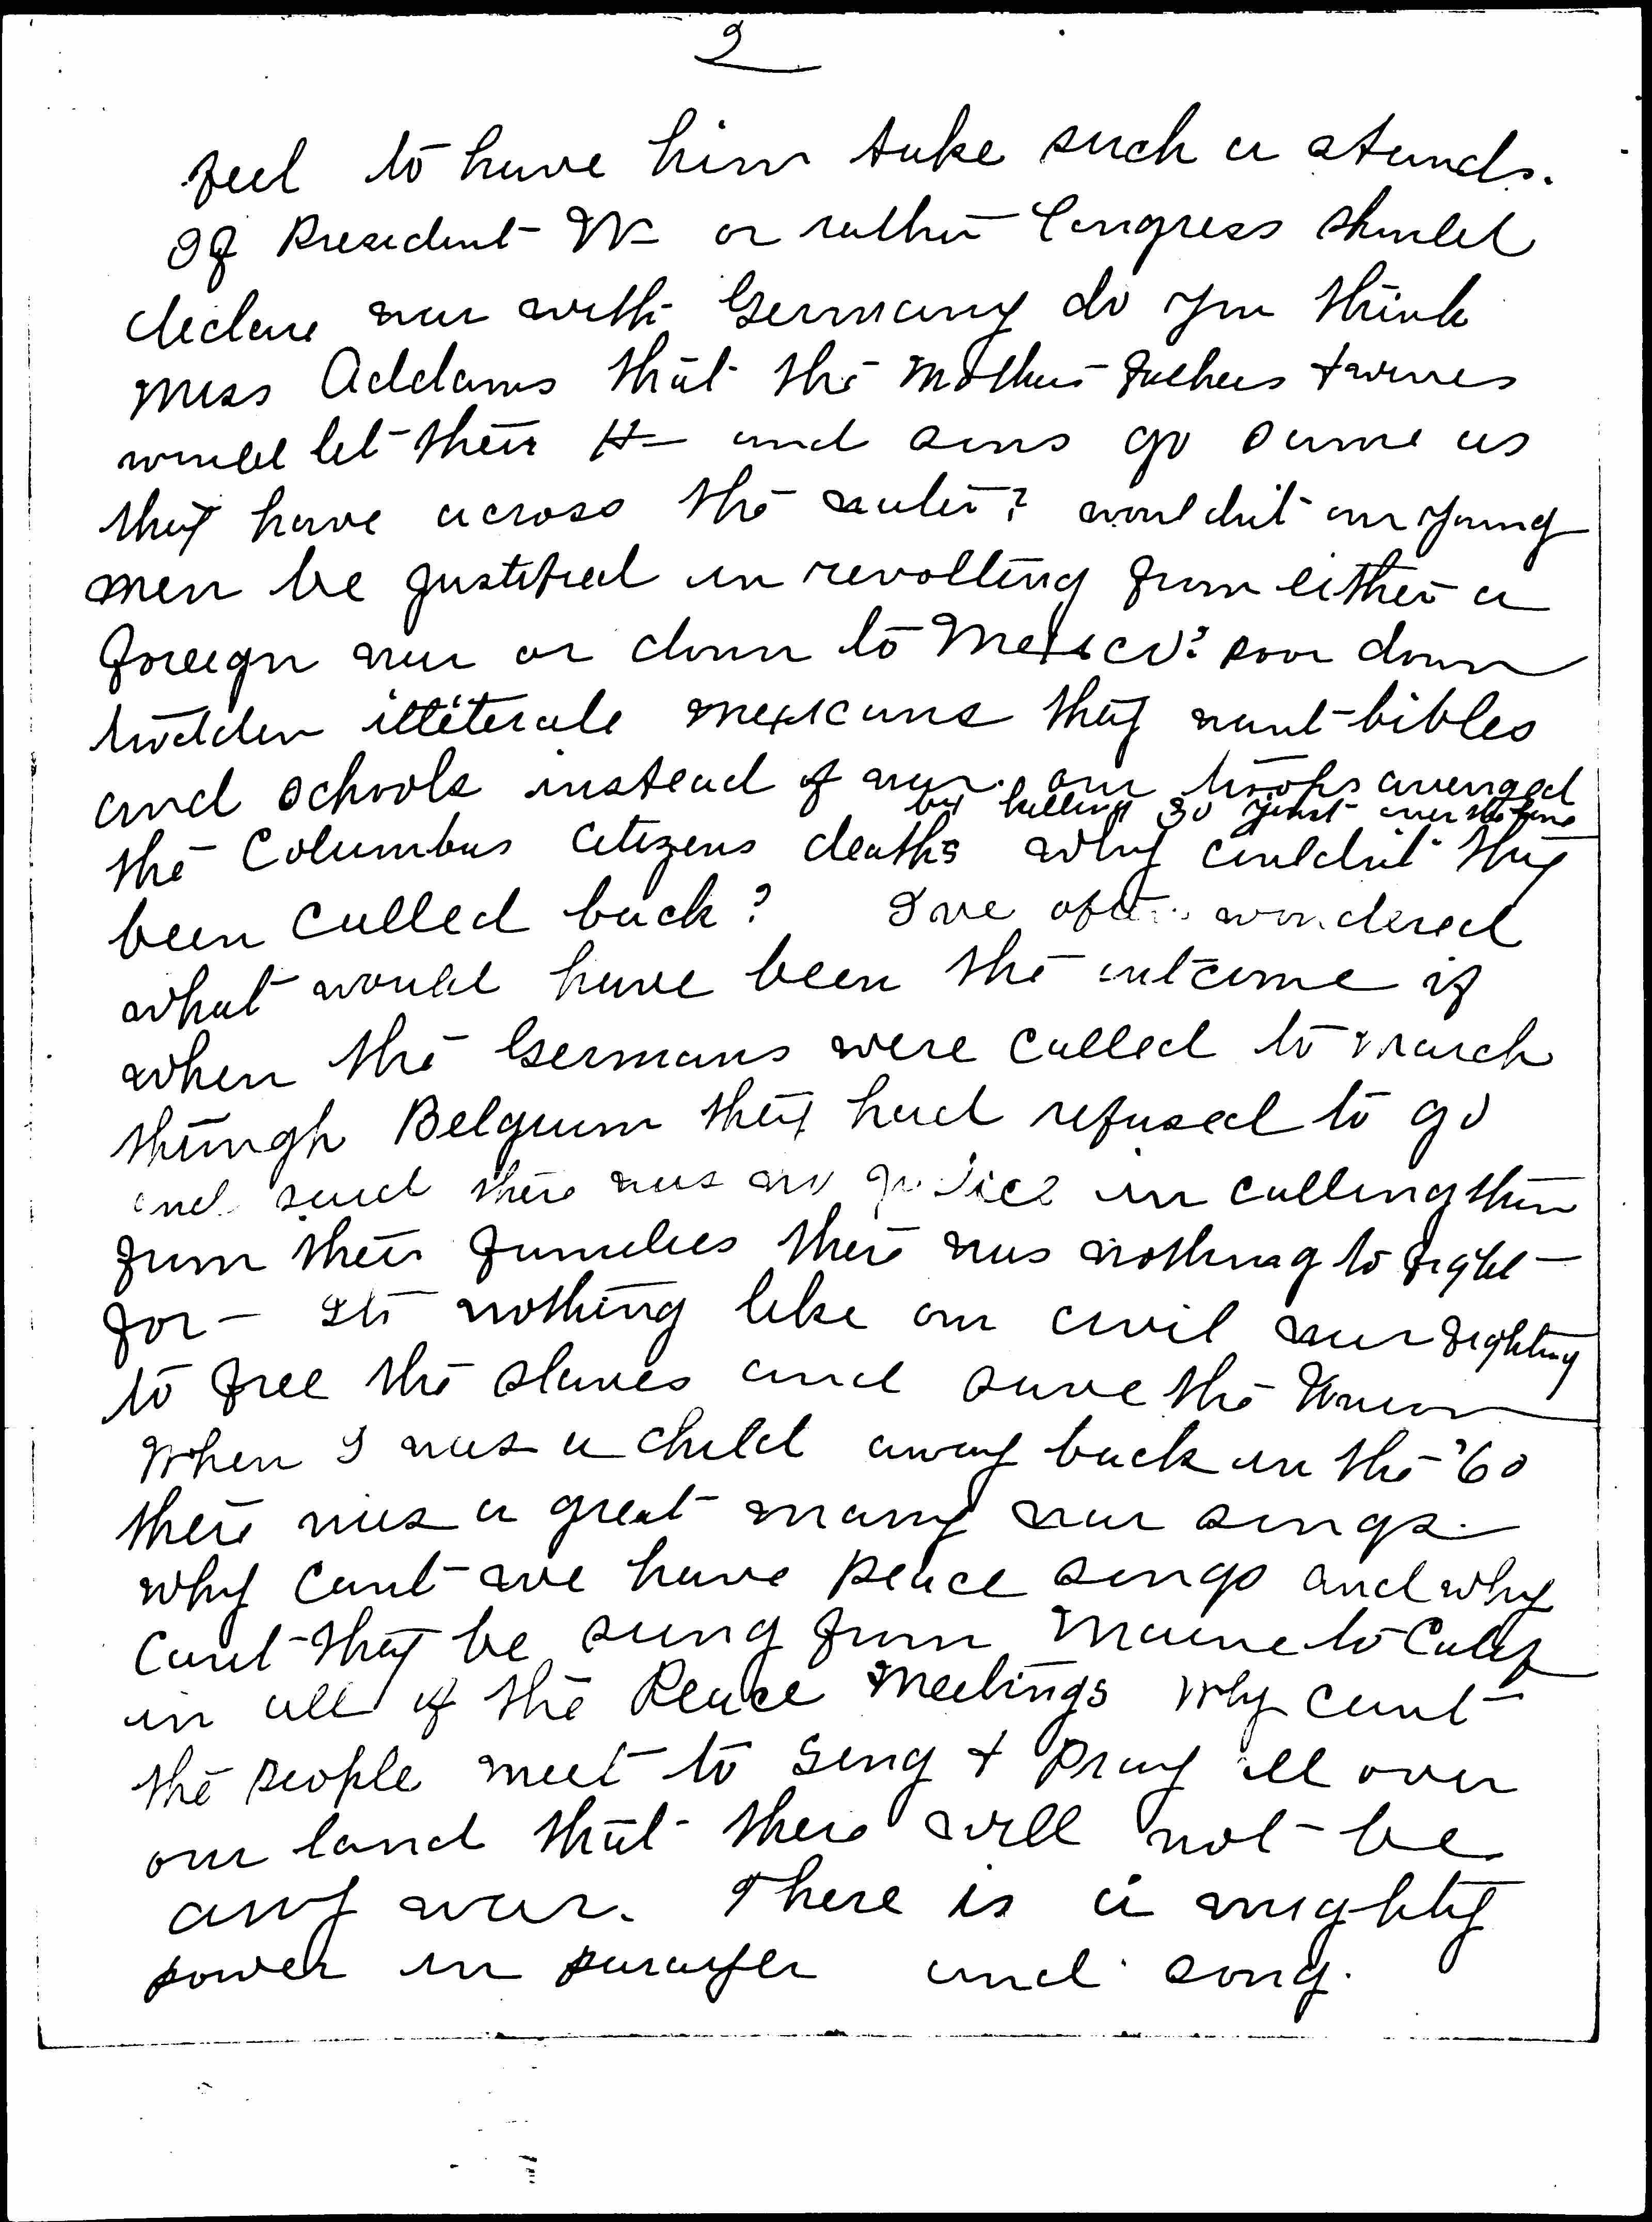 2
feel to have him take such a stand.
If President W— or rather Congress should
declare war with Germany do you think
Miss Addams that the Mothers Fathers + wives
would let their H— and sons go same as
they have across the water? wouldn't our young
men be justified in revolting from either a
foreign war or down to Mexico? poor down
trodden illiterate mexicans they want bibles
and schools instead of war. our troops avenged
by killing 30 just over the line
the Columbus citizens deaths why couldn't they
been called back? I've often wondered
what would have been the outcome if
when the Germans were called to march
through Belgium they had refused to go
and said there was no justice in calling them
from their families there was nothing to fight
for — Its nothing like our civil war fighting
to free the slaves and save the Union
When I was a child away back in the '60
there was a great many war songs.
why cant we have peace songs and why
cant they be sung from Maine to Calif
in all of the Peace Meetings Why cant
the people meet to sing + Pray all over
our land that there will not be
any war. There is a mighty
power in prayer and song.